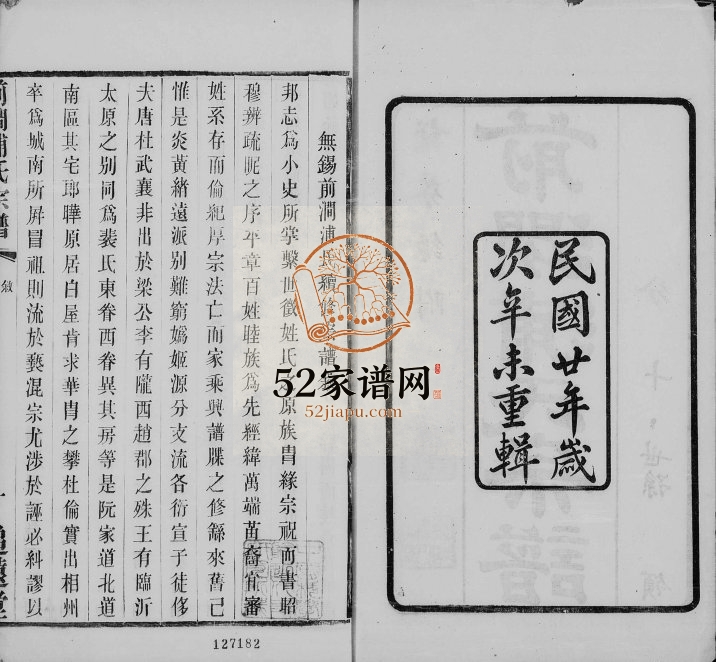 民國廿年歲
次辛未重輯
無錫前澗浦氏續修譜
邦志爲小史所掌繫世徵姓氏原族冑緣宗祝而書昭
穆辨疏昵之序平章百姓睦族爲先經緯萬端苗裔宜審
姓系存而倫紀厚宗法亡而家乘興譜牒之修繇來舊已
惟是炎黃緒遠派别難窮嬀姬源分支流各衍宣于徒侈
夫唐杜武襄非出於梁公李有隴西趙郡之殊王有臨沂
太原之别同爲裴氏東眷西眷異其房等是阮家道北道
南區其宅郎曄原居白屋肯求華冑之攀杜倫實出相州
卒爲城南所屏冒祖則流於褻混宗尤涉於誣必糾謬以
前澗浦氏宗譜
敘
一
52家谱网
52jiapu.com
127182